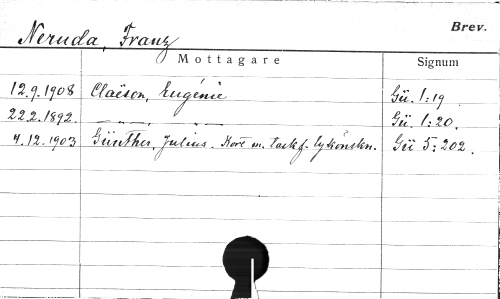 Neruda, Franz
Brev.
Mottagare Signum
12.9.1908 Claëson, Eugénie Gü. 1:19
22.2.1892. — „ — „ — Gü. 1:20.
4.12.1903 Günther, Julius. Kort m. tack f. lyckönskn. Gü 5:202.